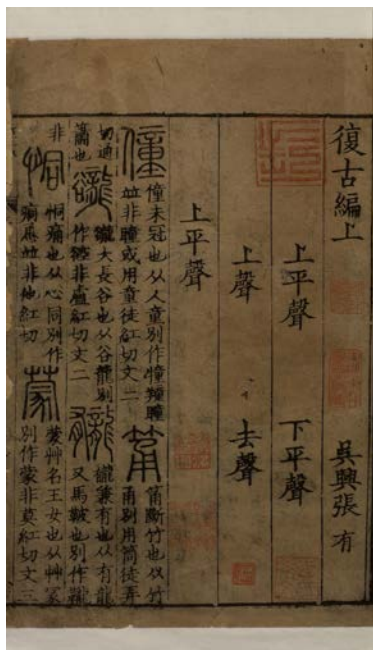 復古編上 吳興張有
上平聲 下平聲
上聲 去聲
上平聲
僮 僮未冠也从人童別作
竝非瞳或用童徒紅切文二
筩 筩斷竹也从竹
甬別用筒徒弄
切通
簫也
豅 豅大長谷也从谷龍別
作 非盧紅切文二
龓 龓兼有也从有龍
又馬鞁也別作
非
恫 恫痛也从心同別作
痌 竝非他紅切
蒙 蒙艸名王女也从艸冡
別作蒙非莫紅切文三